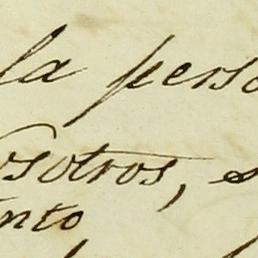 la perso
osotros, s
nto